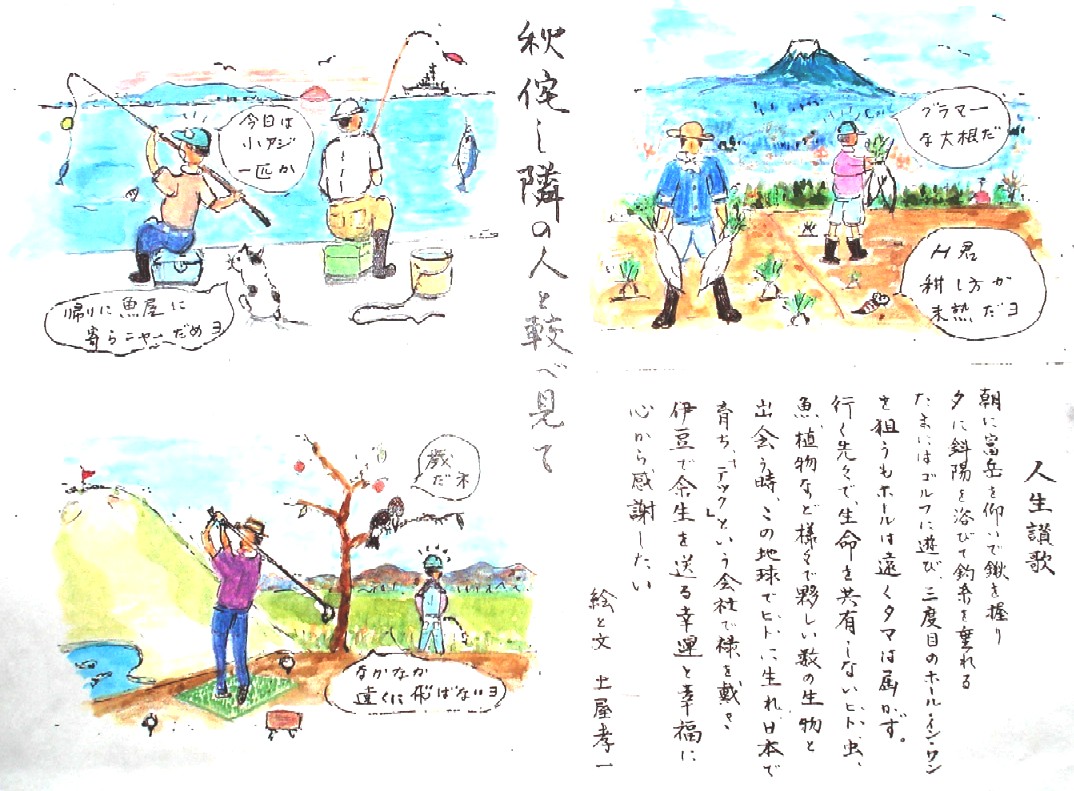 秋侘し隣の人と較べ見て
グラマー
な大根だ
H君
耕し方が
未熟だヨ
今日は
小アジ
一匹か
帰りに魚屋に
寄らニャーだめヨ
歳
だネ
なかなか
遠くに飛ばないヨ
人生讃歌
朝に富岳を仰いで鍬を握り
夕に斜陽を浴びて釣糸を垂れる
たまにはゴルフに遊び、三度目のホール・イン・ワン
を狙うもホールは遠くタマは届かず。
行く先々で、生命を共有しないヒト、虫、
魚、植物など様々で夥しい数の生物と
出会う時、この地球でヒトに生れ、日本で
育ち、「テック」という会社で様を戴き
伊豆で余生を送る幸運と幸福に
心から感謝したい
絵と文 土屋孝一